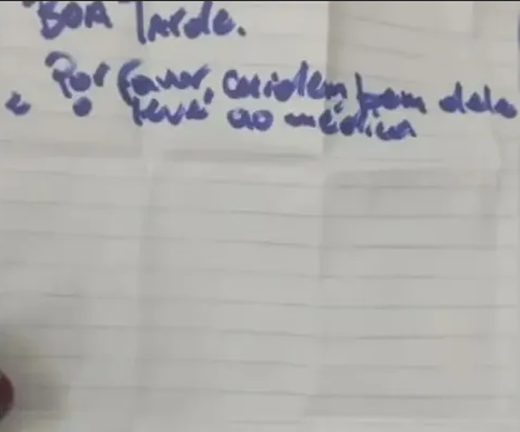 BOA TARde.
Por favor, cuidem bem dele
e o leve ao médico